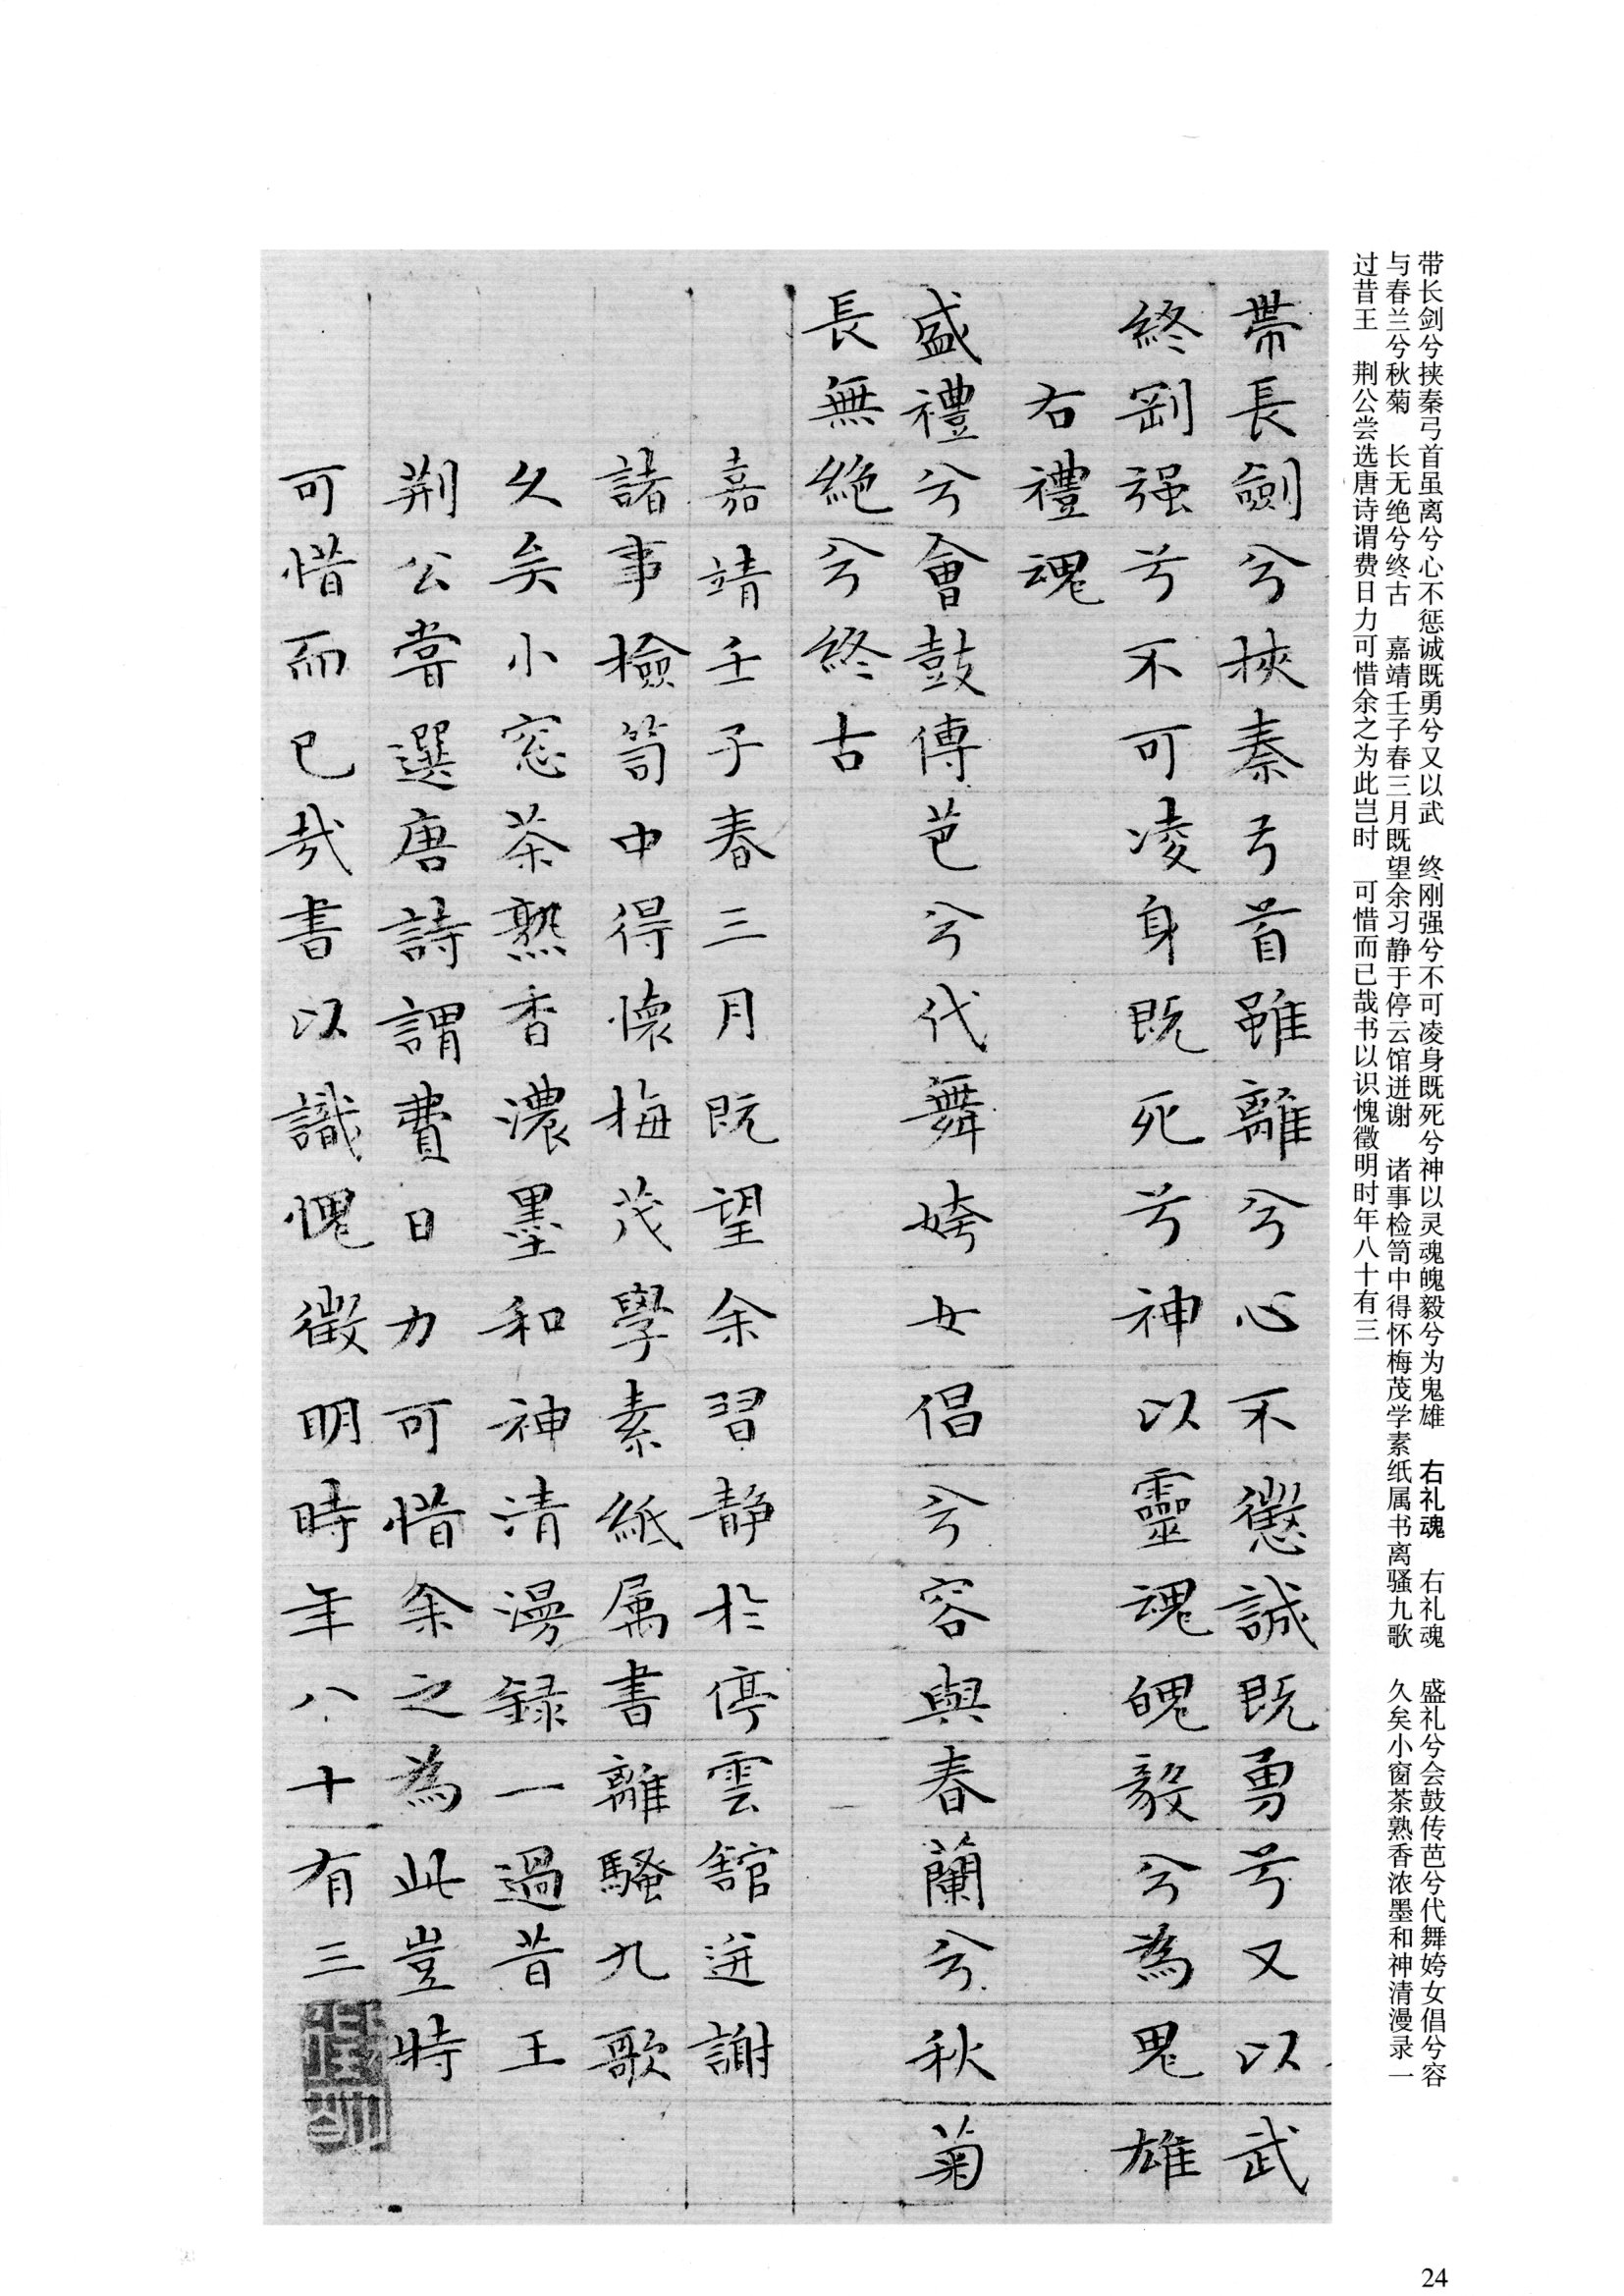 带长剑兮挟秦弓首虽离兮心不惩诚既勇兮又以武　终刚强兮不可凌身既死兮神以灵魂魄毅兮为鬼雄　右礼魂　右礼魂　盛礼兮会鼓传芭兮代舞姱女倡兮容
与春兰兮秋菊　长无绝兮终古　嘉靖壬子春三月既望余习静于停云馆迸谢　诸事检笥中得怀梅茂学素纸属书离骚九歌　久矣小窗茶熟香浓墨和神清漫录一
过昔王　荆公尝选唐诗谓费日力可惜余之为此岂时　可惜而已哉书以识愧徵明时年八十有三
帶長劍兮挾秦弓首雖離兮心不懲誠既勇兮又以武
終剛强兮不可凌身既死兮神以靈魂魄毅兮為鬼雄
右禮魂
盛禮兮會鼓傳芭兮代舞姱女倡兮容與春蘭兮秋菊
長無絶兮終古
嘉靖壬子春三月既望余習静於停雲舘迸謝
諸事檢笥中得懷梅茂學素紙属書離騷九歌
久矣小窓茶熟香濃墨和神清漫録一過昔王
荆公嘗選唐詩謂費日力可惜余之為此豈時
可惜而已哉書以識愧徵明時年八十有三
24